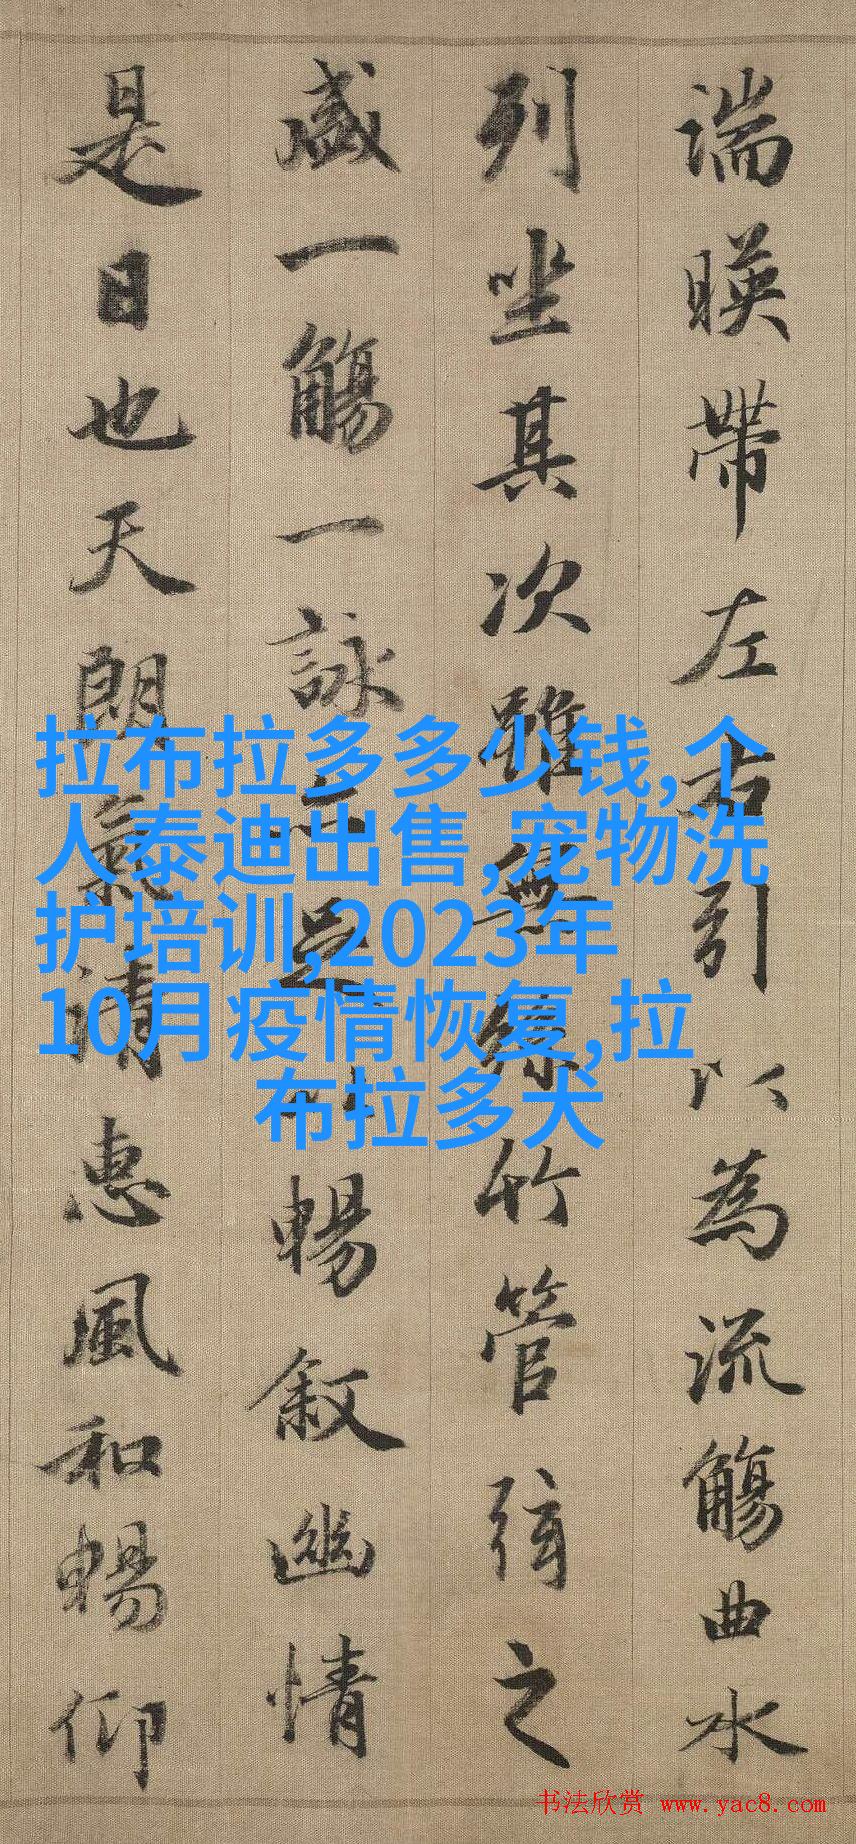 湍暎帶左右引以為流觴曲水
列坐其次雖無絲竹管弦之
盛一觴一詠亦足以暢叙幽情
是日也天朗氣清惠風和暢仰
拉布拉多多少钱,个
人泰迪出售,宠物洗
护培训,2023年
10月疫情恢复,拉
布拉多犬
书法欣赏 www.yac8.com